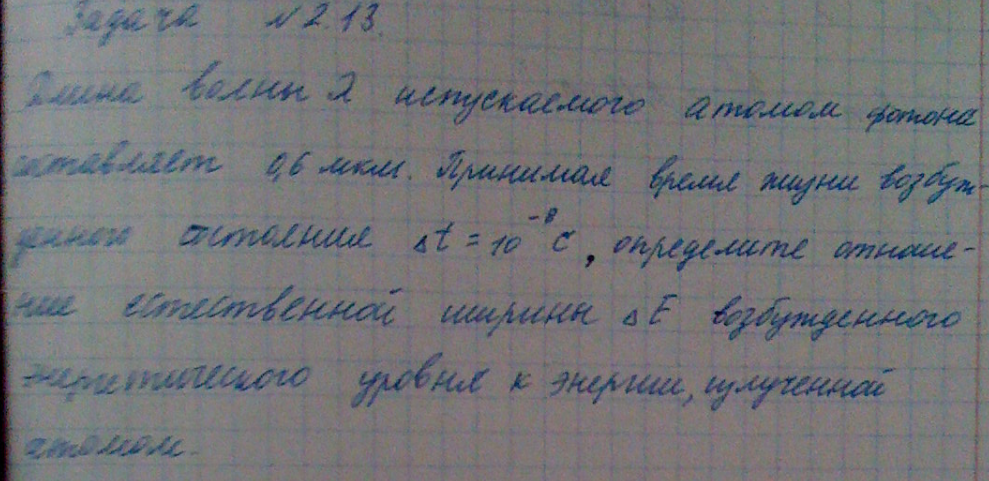 Задача №2.13.
Длина волны λ испускаемого атомом фотона
составляет 0,6 мкм. Принимая время жизни возбуж-
денного состояния Δt = 10⁻⁸ с, определите отноше-
ние естественной ширины ΔE возбужденного
энергетического уровня к энергии, излученной
атомом.